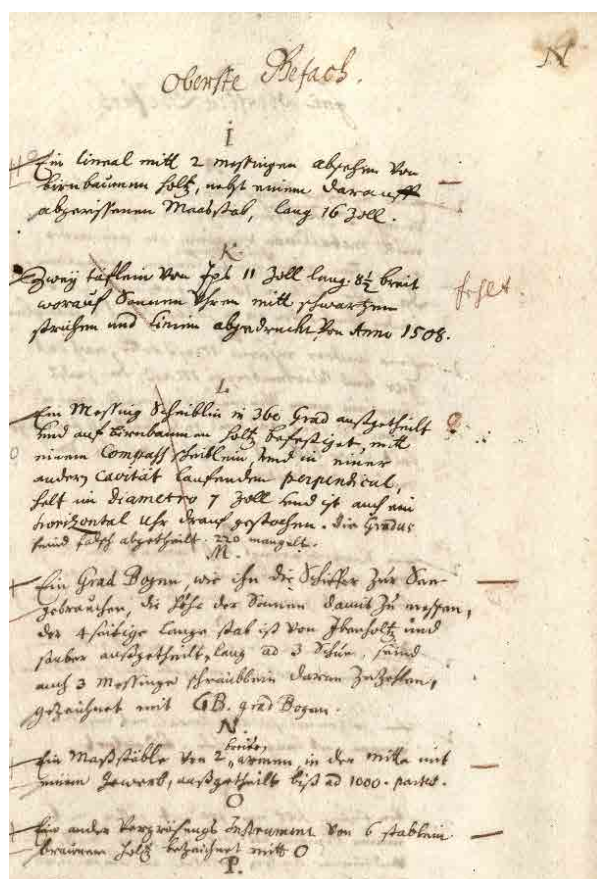 N
Oberste Gefach.
I
Ein lineal mitt 2 messingen absehen von
birnbaumen holtz, nebst einem darauff
abgerissenen Maasstab, lang 16 Zoll.
K.
Zwey täfflein von Ips 11 Zoll lang. 8½ breit
worauf Sonnen Uhren mitt schwartzen
strichen und linien abgedruckt von Anno 1508.
fehlt
L
Ein Messing Scheiblin in 360 Grad außgetheilt
und auf birnbaumen holtz befestiget, mitt
einem Compass scheiblein, und in einer
andern cavität lauffendem perpendicul,
helt im diametro 7 Zoll und ist auch ein
horizontal Uhr drauf gestochen. die Gradus
seind falsch abgetheilt. 220 mangelt.
M.
Ein Grad Bogen, wie ihn die Schiffer zur See
gebrauchen, die höhe der Sonnen damit zu messen,
der 4 seitige lange stab ist von holtz und
sauber außgetheilt, lang ad 3 Schue, seind
auch 3 Messinge schräublein daran
gezeichnet mit GB. grad Bogen.
N.
Ein Maßstäble von 2 breite, armen, in der mitte mit
einem gewerb, außgetheilt biß ad 1000. partes.
O
Ein ander Instrument von 6 stäblein
braunem holtz bezeichnet mitt O
P.